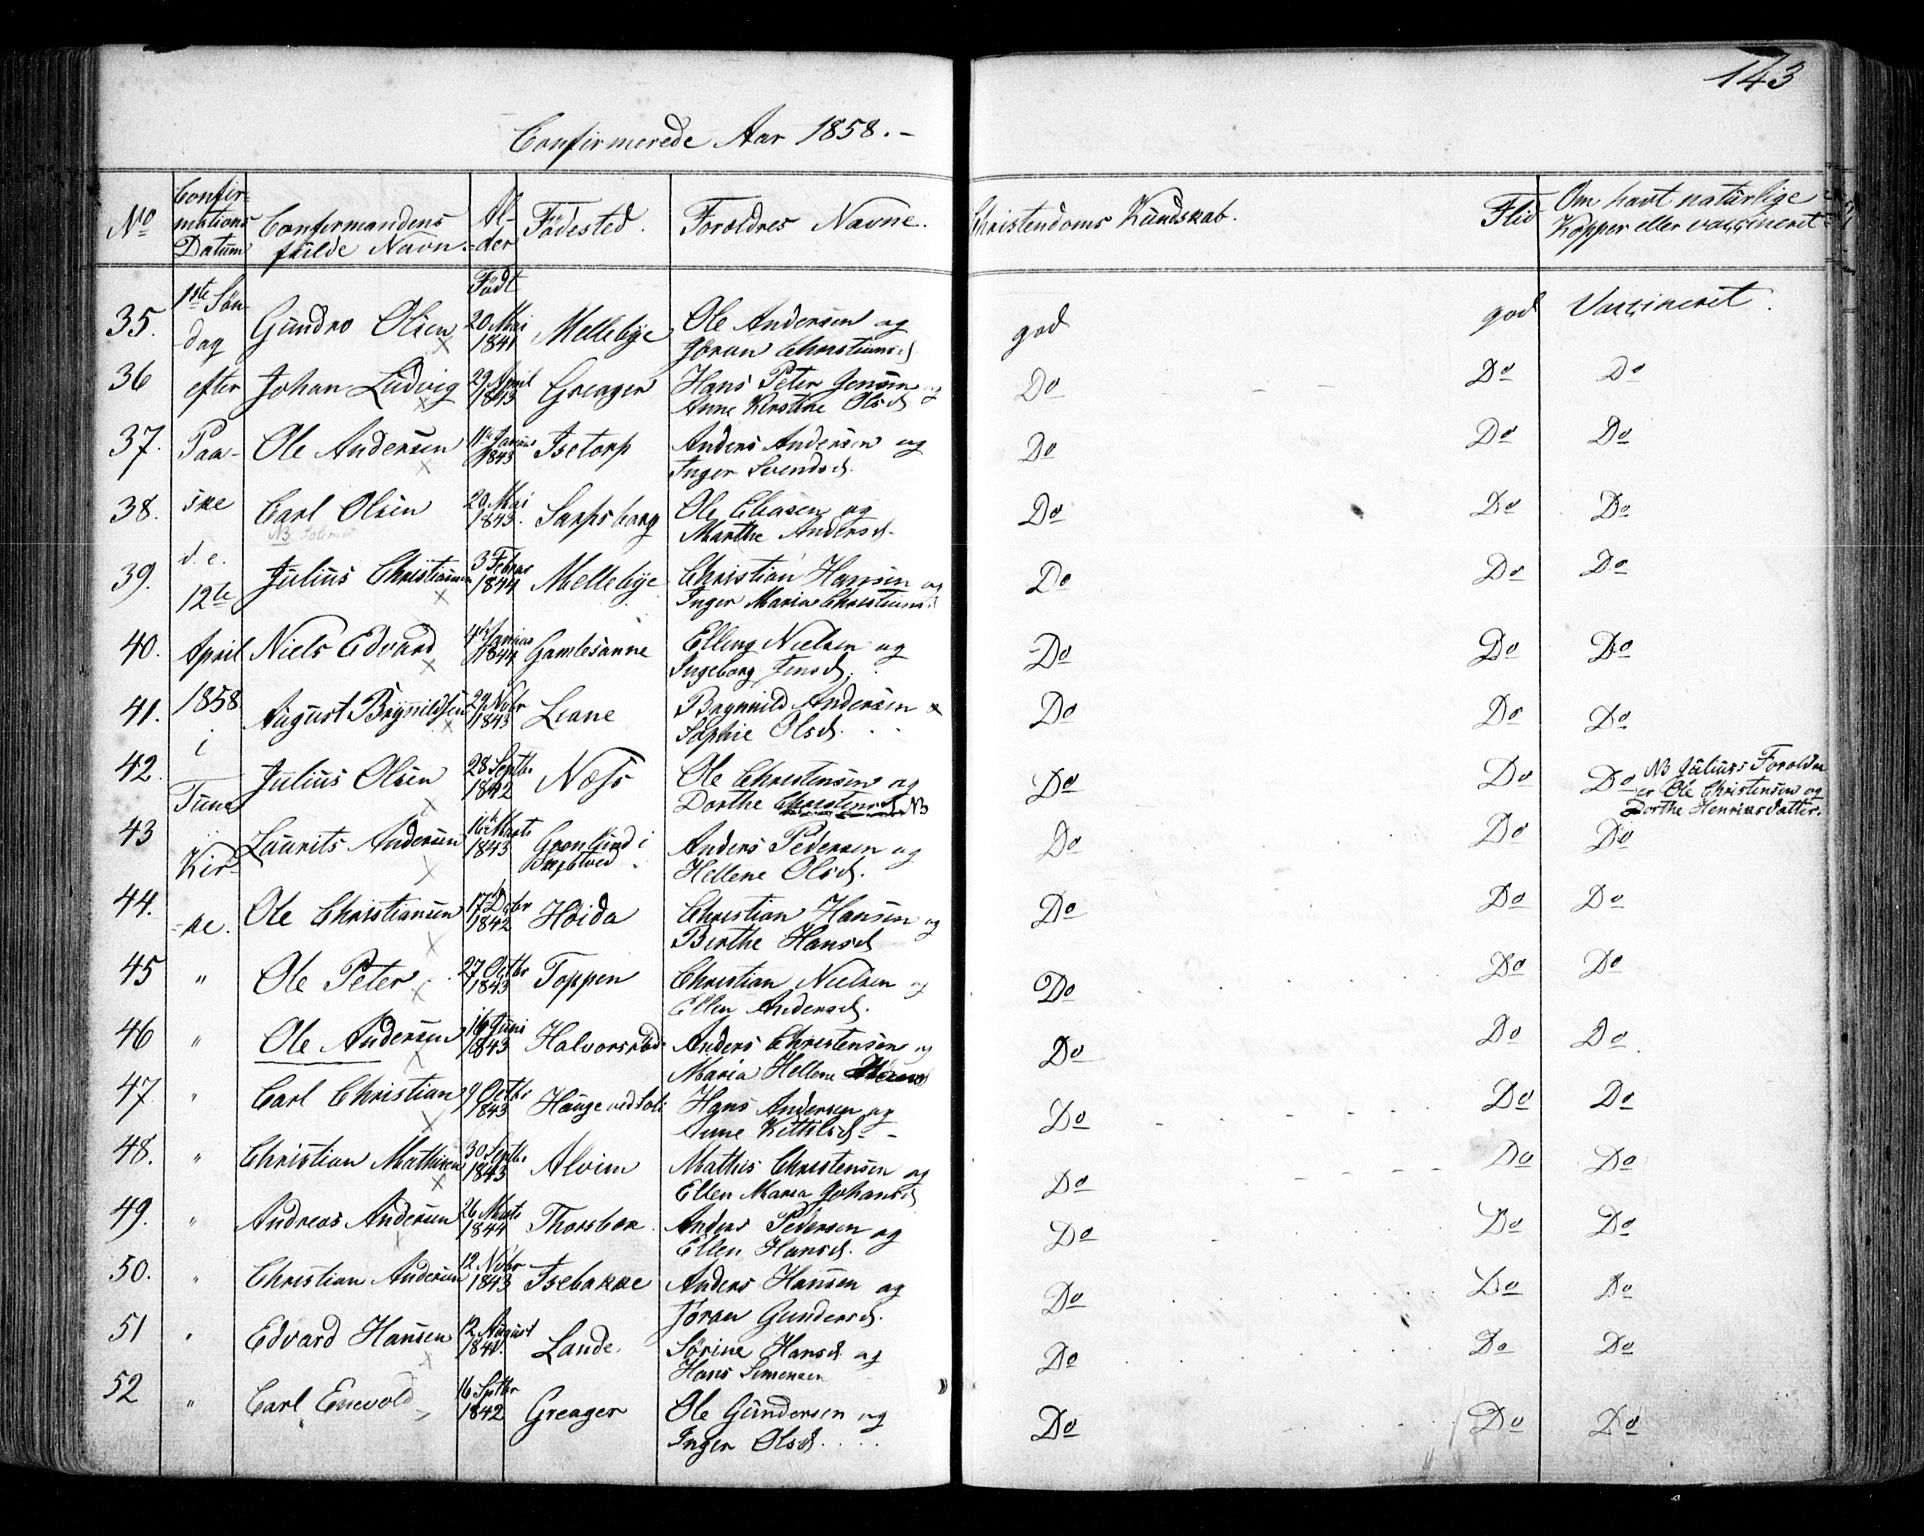 143
Confirmerede Aar 1858.-
No
Confir-
mations
Datum
Confirmandens
fulde Navn.
Al-
der
Födested.
Foroldres Navne.
Christendoms Kundskab.
Flid
Om havt naturlige
Kopper eller vaccineret
Födt
35. 1ste Sön- Gundro Olsen 20 Mai Mellebye Ole Andersen og god god Vaccineret.
dag 1841 Joran Christiansd
36 efter Johan Ludvig 29 April Greager Hans Peter Jensen og Do Do Do
1843 Anne Kirstine Olsd
37. Paa- Ole Andersen 11te Isetorp Anders Andersen og Do Do Do
1843 Inger Svendsd.
38. ske Carl Olsen 20 Mai Sarpsborg Ole Eliasen og Do Do Do
NB 1843. Marthe Andersd.
39. d. e. Julius Christiansen 3 Febrar Mellebye Christian Hansen og Do Do Do
12te 1844 Inger Maria Christians.
40. April Niels Edvard 4de Gamlesanne Elling Nielsen og Do Do Do
1844 Ingeborg Jensd.
41. 1858 August Brynildsen 29 Nobr Leane Brynnild Andersen & Do Do Do
1843 Sophie Olsd.
42. i Julius Olsen 28 Septbr Næss Ole Christensen og Do Do Do NB Julius's Foroldre
Tune 1842 Dorthe Christensd NB er Ole Christensen og
Dorthe Henriksdatter.
43 Kir- Laurits Andersen 16de Marts Gronlund i Anders Pedersen og Do Do Do
1843 Hellene Olsd.
44. -ke. Ole Christiansen 17 Debr Höida Christian Hansen og Do Do Do
1842 Berthe Hansd
45 " Ole Peter 27 Octbr Toppen Christian Nielsen og Do Do Do
1843 Ellen Andersd.
46 " Ole Andersen 16 Juni Halvorsröd Anders Christensen og Do Do Do.
1843 Maria Hellene
47 " Carl Christian 9 Octbr Hauge ved Soli Hans Andersen og Do Do Do
1843 Anne Kittilsd -
48. " Christian Mathisen 30 Septbr Alvim Mathis Christensen og Do Do Do
1843 Ellen Maria Johansd
49. " Andreas Andersen 26 Marts Thorsbek Anders Pedersen og Do Do Do
1844 Ellen Hansd.
50. " Christian Andersen 12 Nobr Isebakke Anders Hansen og Do Do Do
1843 Joran Gundersd.
51 " Edvard Hansen 12 August Lande. Sörine Hansd og Do Do Do
Hans Simensen
52 " Carl Enevold 16 Septbr Greager Ole Gundersen og Do Do Do
1842 Inger Olsd....